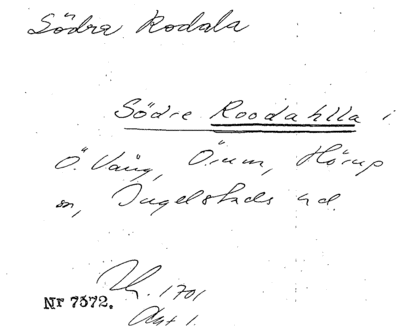 Södra Rodala
Södre Roodahlla i
Ö. Vång, Örum, Hörup
sn, Ingelstads hd.
Lk. 1701
Akt 1.
Nr 7372.